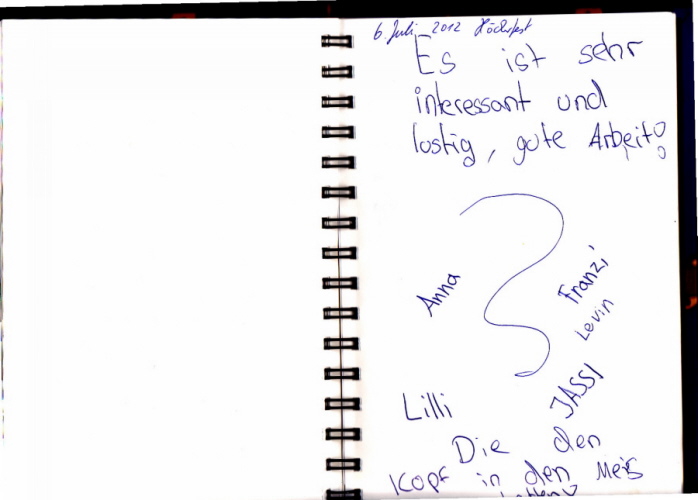 6. Juli 2012 Höchstfest
Es ist sehr
interessant und
lustig, gute Arbeit!
Anna
Franzi
Levin
JASSI
Lilli
Die den
Kopf in den Meis